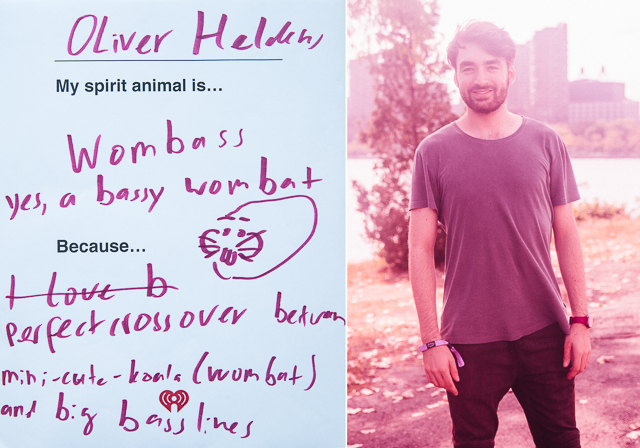 Oliver Heldens
My spirit animal is...
Wombass
yes, a bassy wombat
Because...
I love b
perfect crossover between
mini-cute-koala (wombat)
and big basslines